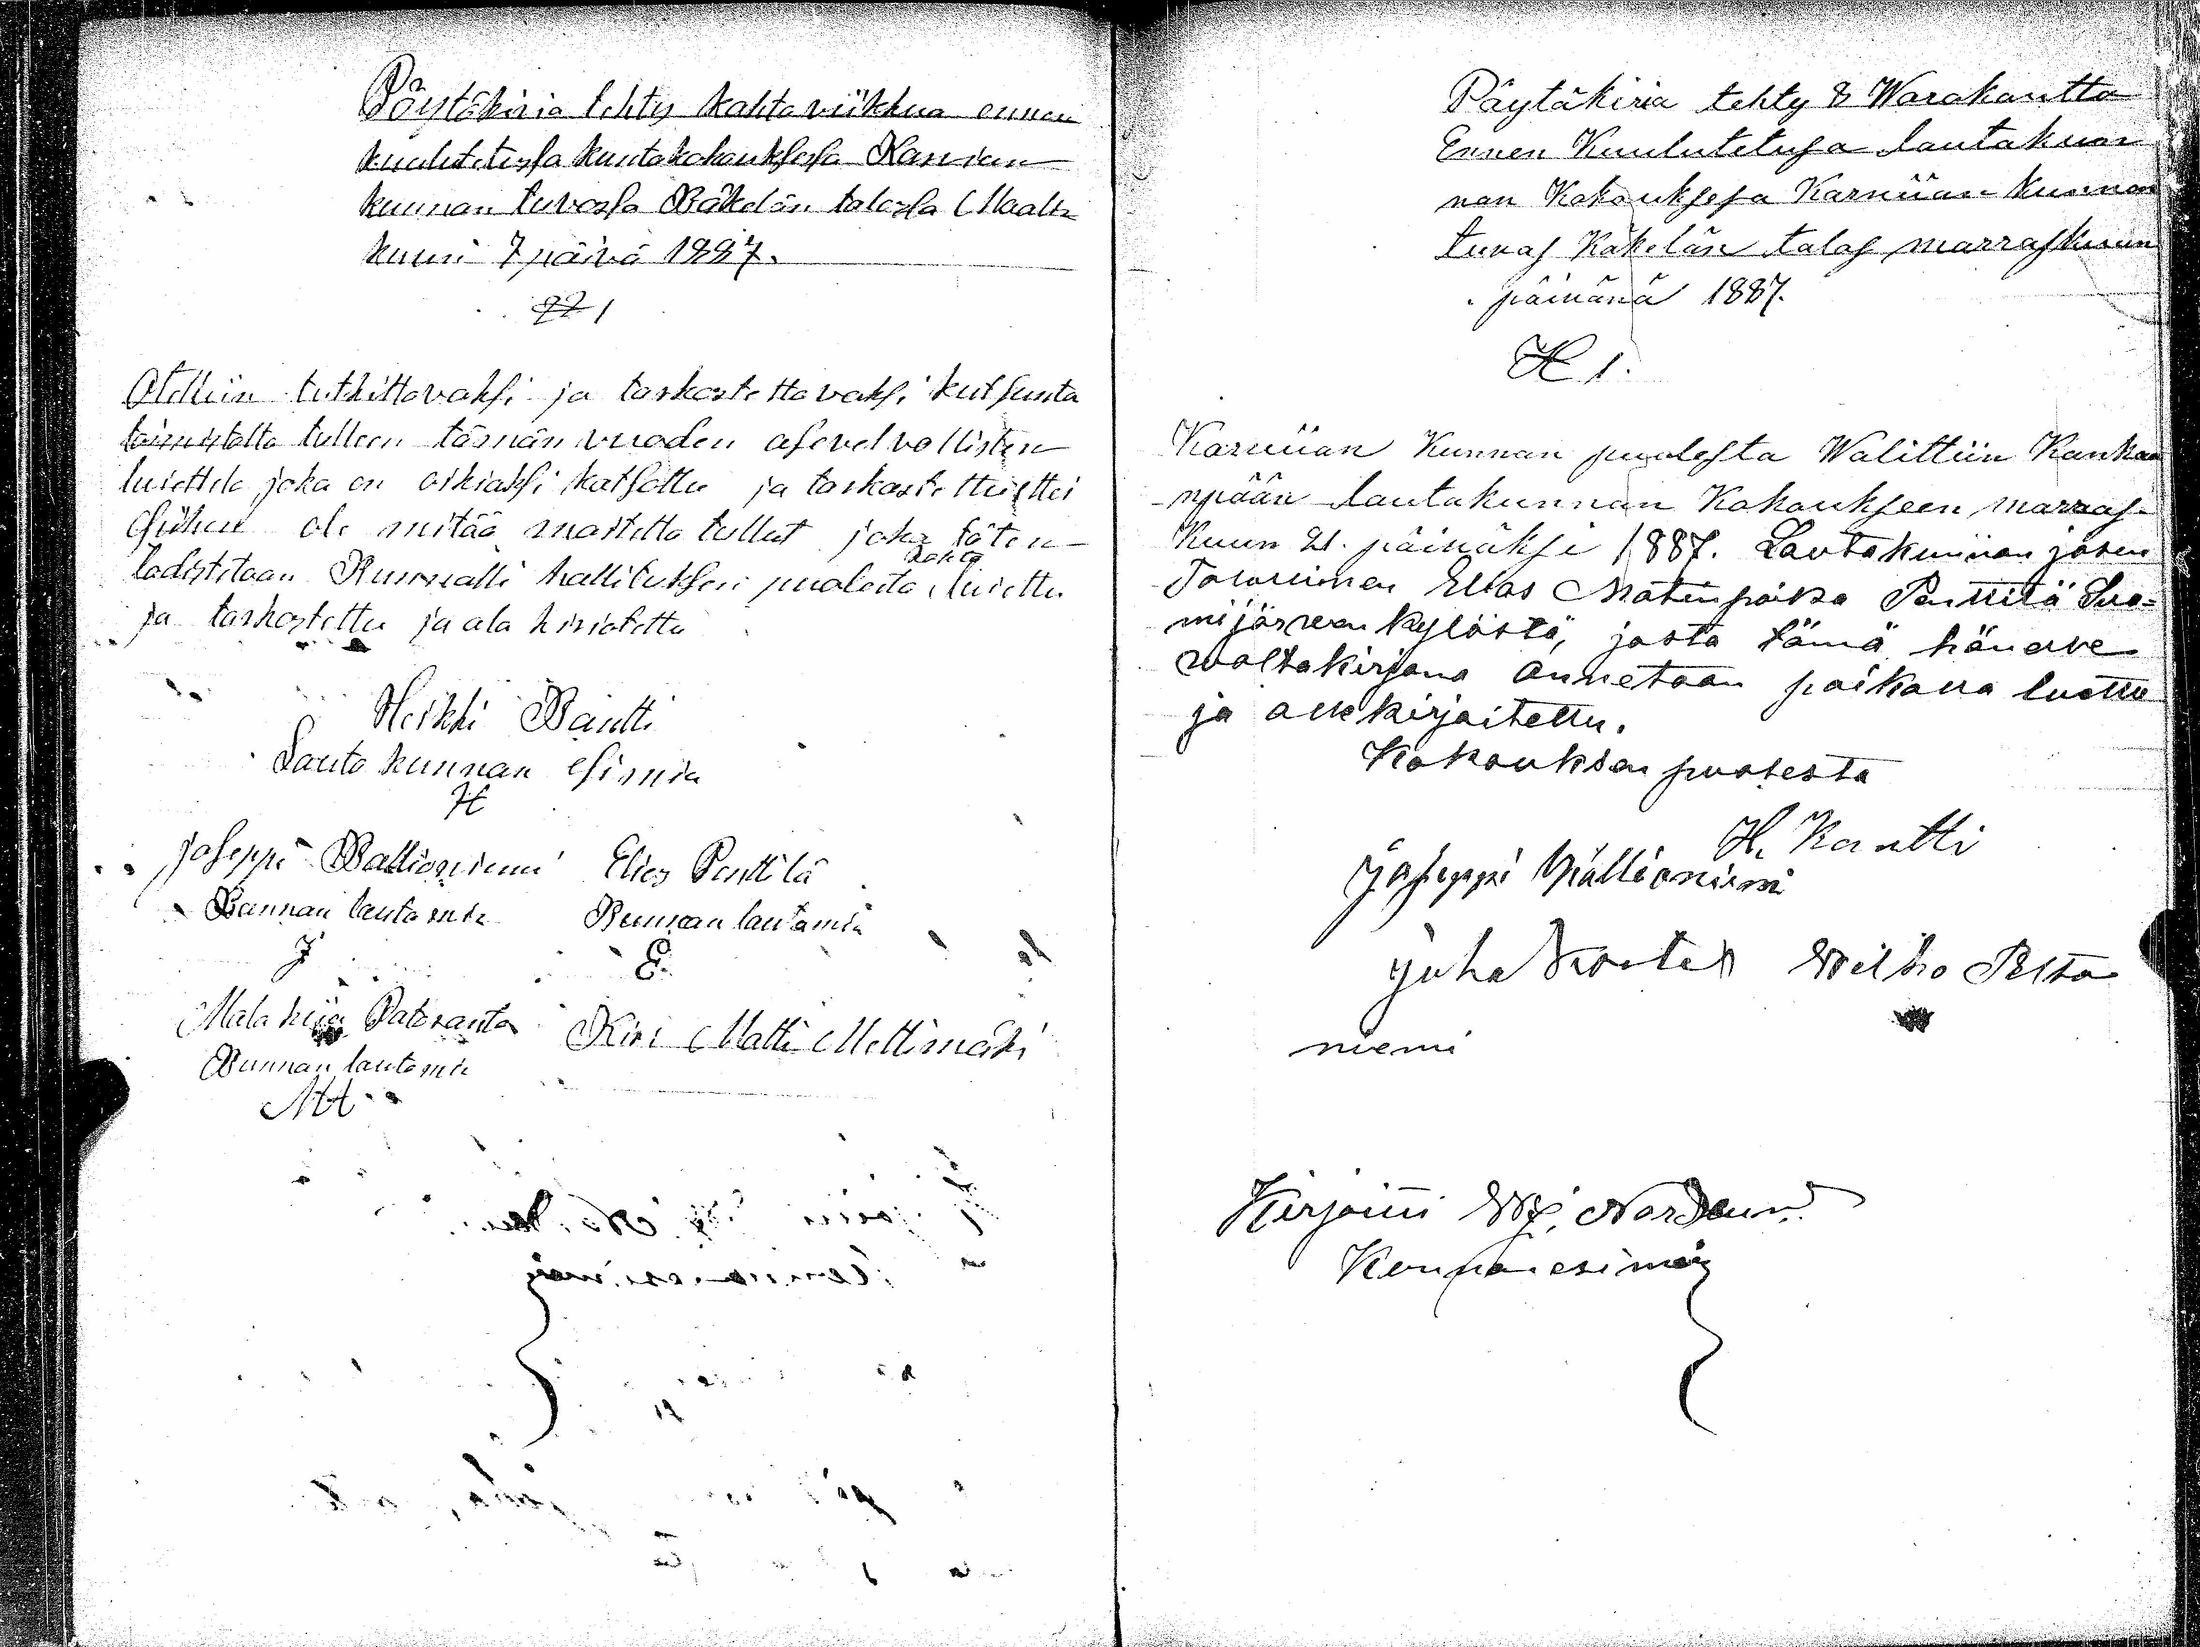 Pöytäkiria tehty kahta viikkua ennen
kuulutetussa kuntakokouksessa Karvian
kunnan tuvassa Käkelän talossa Maalis
kuun 7 päivä 1887.
§ 1
Otettiin tutkittavaksi ja tarkastettavaksi kutsunta
toimistolta tulleen tämän vuoden asevelvollisten
luettelo joka on oikiaksi katsottu ja tarkastettu ettei
siihen ole mitää muistetta tullut joka täten
todistetaan Kunnalli hallituksen puolesta luiettu
ja tarkastettu ja ala kiriotettu
Heikki Kantti
Lauta kunnan Esimies
H
joseppi Kallioniemi Elies Penttilä
Kunnan lautamies Kunnan lautamies
J E.
Malakiia Patoranta Kiri Matti Mettimäki
Kunnan lautamies
MH
Päytäkiria tehty 8 Warakautta
Ennen Kuulutetusa lautakun
nan Kokouksesa Karviian Kunnan
tuvas Käkelän talos marraskuun
päivänä 1887.
§ 1.
Karviian Kunnan puolesta Walittiin Kankan
npään lautakunnan Kokoukseen marras-
Kuun 21. päiväksi 1887. Lautakunnan jäsen
Talollinen Elias Matinpoika Penttilä Suo=
mijärven kylästä, josta tämä hänelle
waltakirjana annetaan paikalla luettu
ja allekirjoitettu.
Kokouksen puolesta
H. Kantti
Joseppi Kallioniemi
Juha Wilho Pelto
niemi
Kirjoitti
Kunnanesimies